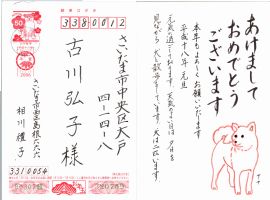 郵便はがき
3380012
50
2006
さいたま市中央区大戸
四-一四-八
古川弘子様
さいたま市西区島根六六六
相川禮子
3310054
あけまして
おめでとう
ございます
本年もよろしくお願いいたします
平成十八年 元旦
元気で過ごしております。天気のよい日は夕日を
見ながら、犬と散歩をしています。犬は二匹います。